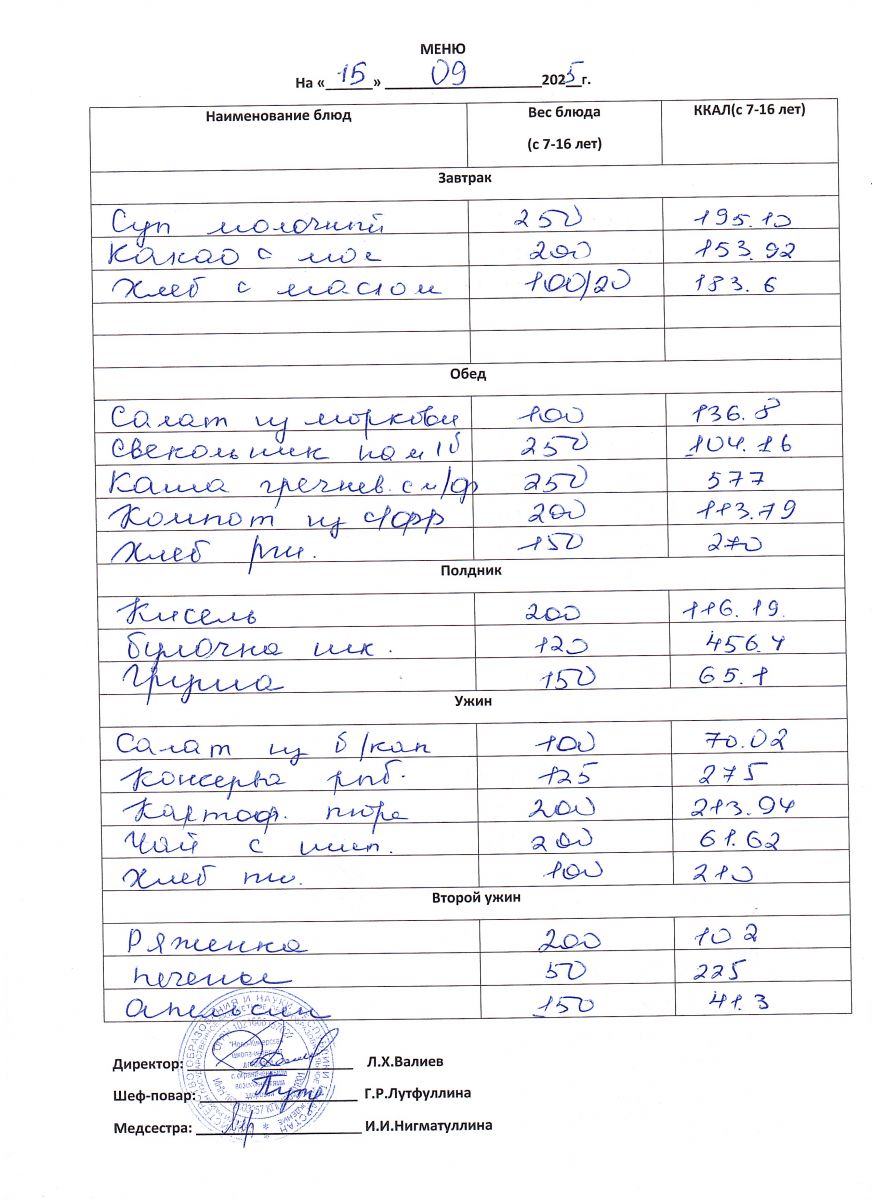 МЕНЮ
На «15» 09 2025 г.
Наименование блюд Вес блюда (с 7-16 лет) ККАЛ(с 7-16 лет)
Завтрак
Суп молочный 250 195.10
Какао с мол 200 153.92
Хлеб с маслом 100/20 183.6
Обед
Салат из моркови 100 136.8
Свекольник на м/б 250 104.16
Каша гречнев. с м/ф 250 577
Компот из с/фр 200 113.79
Хлеб рж. 150 270
Полдник
Кисель 200 116.19.
Булочка шк. 120 456.4
Груша 150 65.1
Ужин
Салат из б/кап 100 70.02
Консерва рыб. 125 275
Картоф. пюре 200 213.94
Чай с шип. 200 61.62
Хлеб пш. 100 210
Второй ужин
Ряженка 200 102
Печенье 50 225
Апельсин 150 41.3
Директор: Л.Х.Валиев
Шеф-повар: Г.Р.Лутфуллина
Медсестра: И.И.Нигматуллина